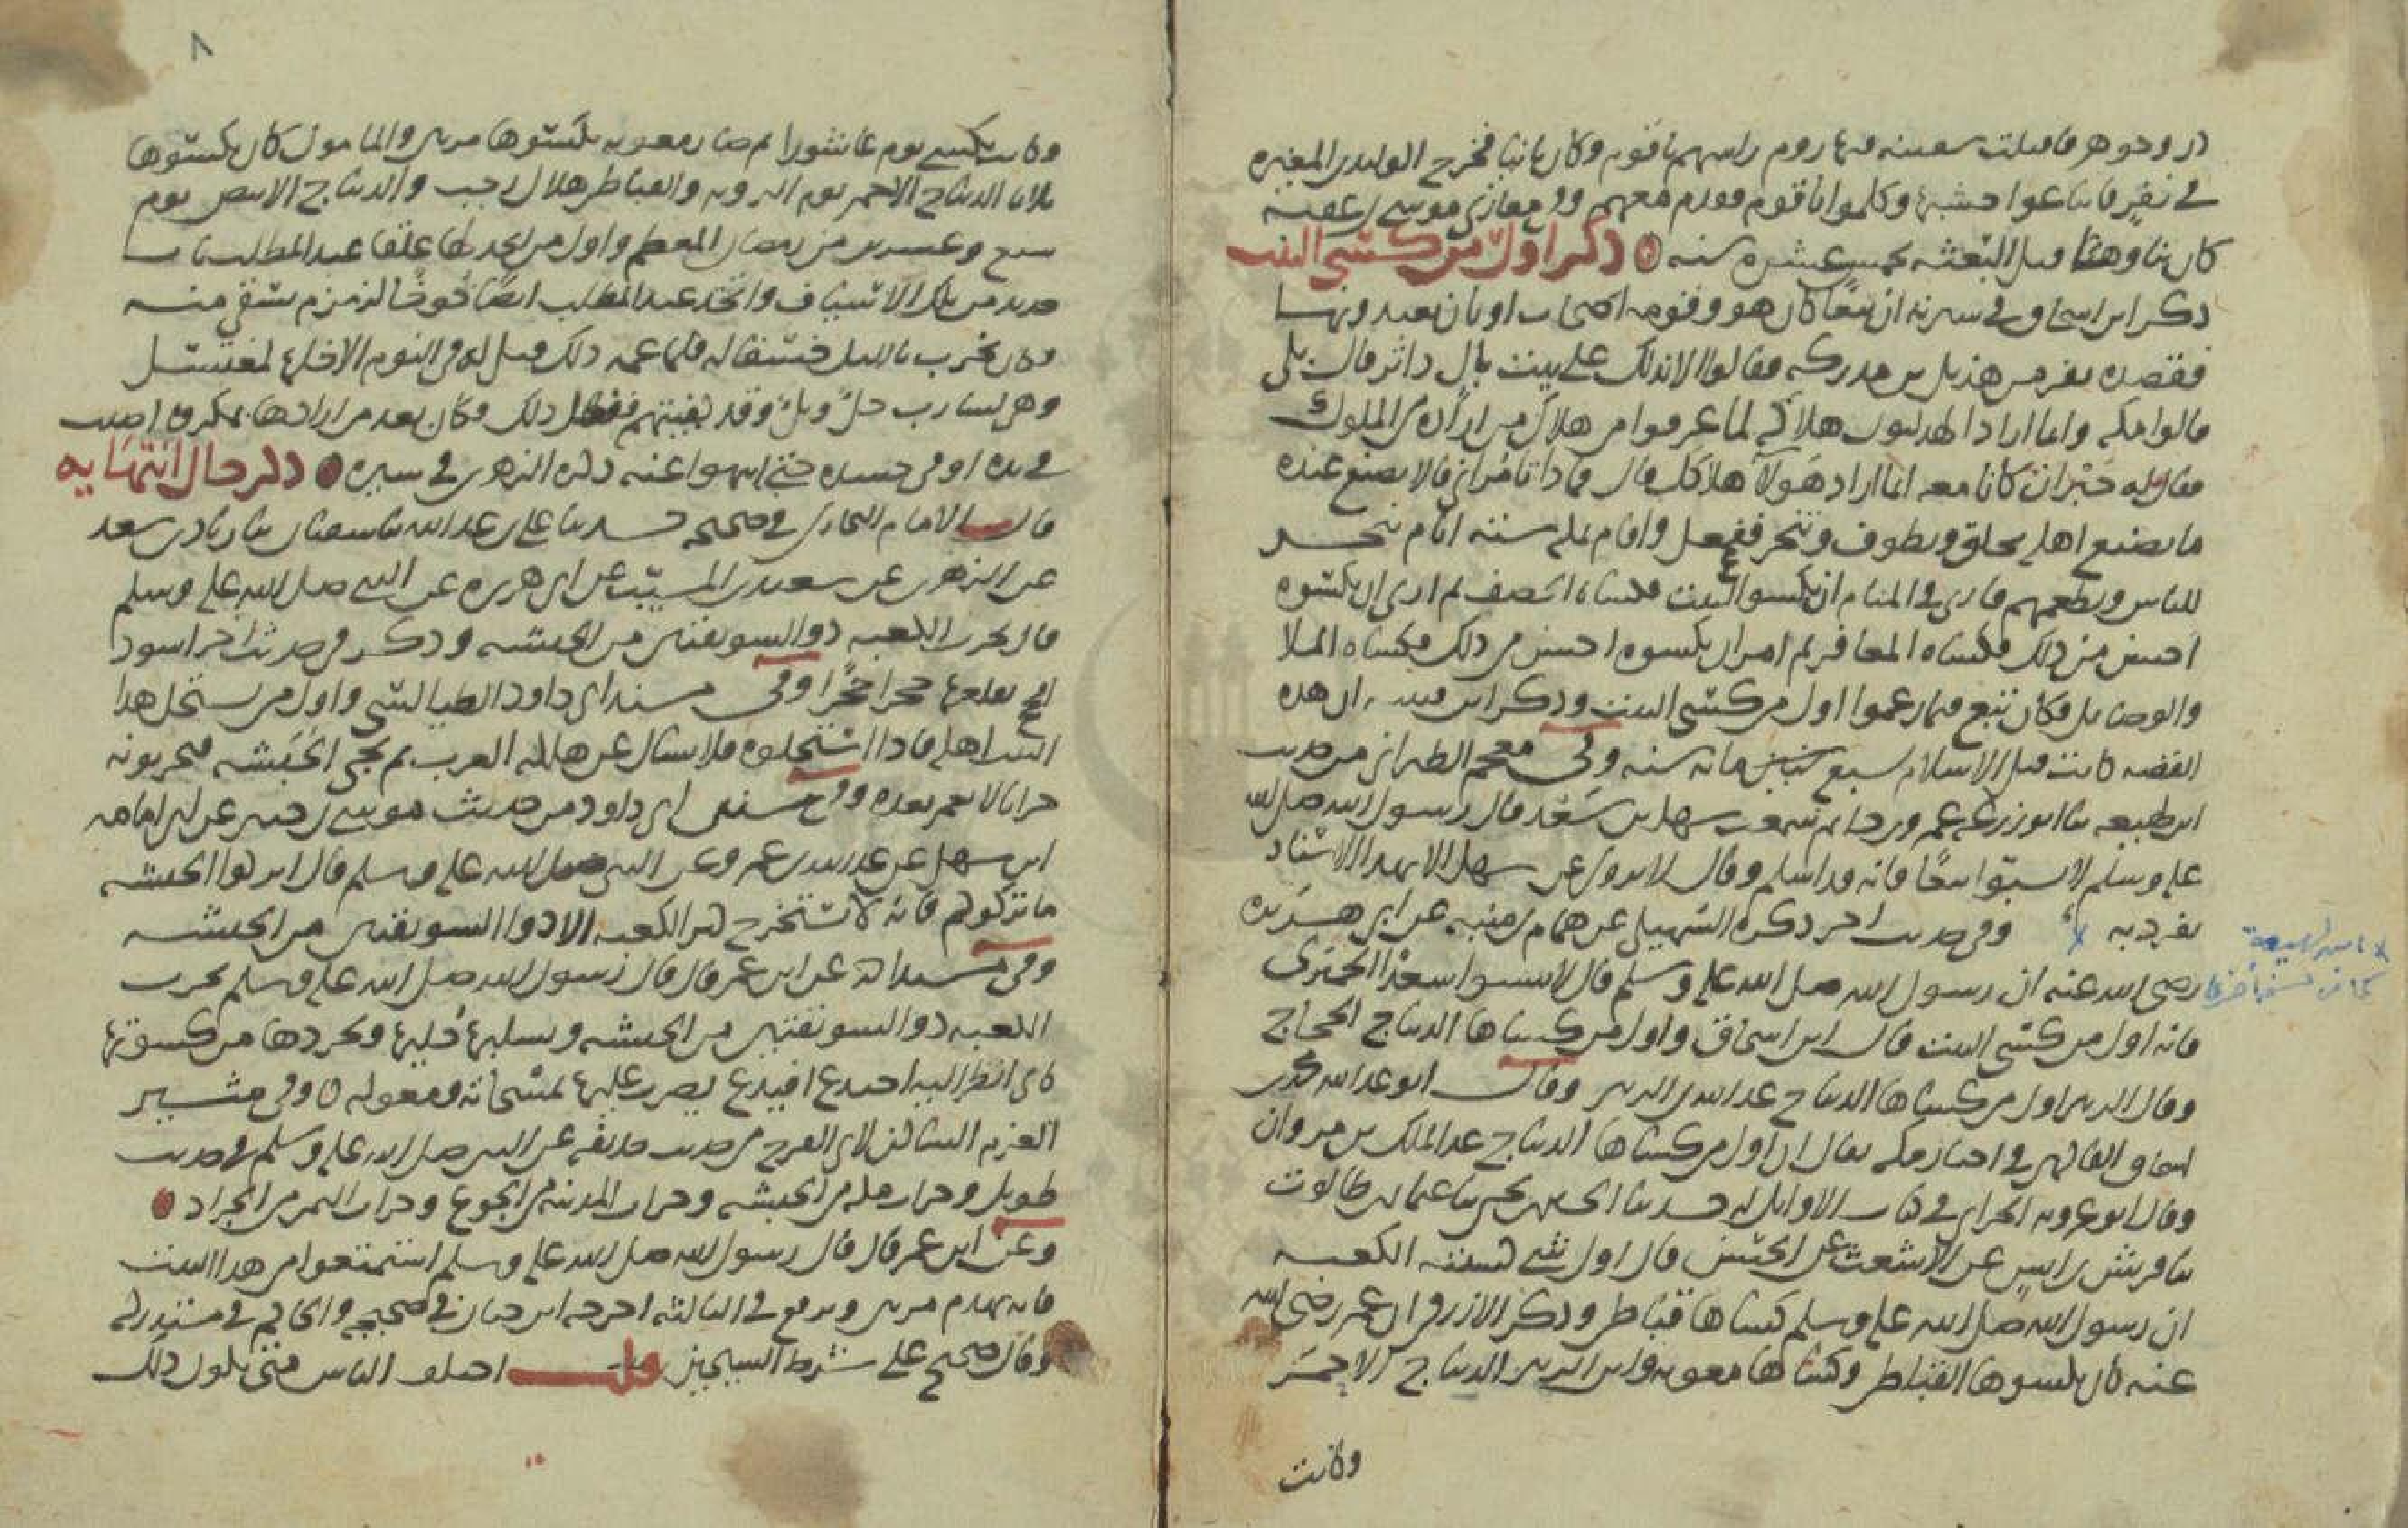 في نفر فابتاعوا خشبها وكلموا باقوم فقدم معهم وفي مغازي موسى بن عقبة
كان بناوها قبل البعثه بخمس عشره سنه ذكر اول من كسى البيت
ذكر ابن اسحاق في سيرته ان تبعا كان هو وقومه اصحاب اوثان يعبدونها
فقصده نفر من هذيل بن مدركه فقالوا الا ندلك على بيت مال داثر قال بلى
قالوا مكه وانما اراد الهذليون هلاكه لما عرفوا من هلاك من اراده من الملوك
فقال له حبران كانا معه انما اراد هولا هلاكك قال فماذا تامراني قالا تصنع عنده
ما يصنع اهله تحلق وتطوف وتنحر ففعل واقام بمكه ستة ايام ينحر
للناس ويطعمهم فاري في المنام ان يكسو البيت فكساه الخصف ثم اري ان يكسوه
احسن من ذلك فكساه المعافر ثم امر ان يكسوه احسن من ذلك فكساه الملا
والوصايل فكان تبع فيما زعموا اول من كسى البيت وذكر ابن قتيبه ان هذه
القصه كانت قبل الاسلام بسبع مائه سنه وفي معجم الطبراني من حديث
ابن لهيعه ثنا ابو زرعه عمرو بن جابر سمعت سهل بن سعد قال رسول الله صلى الله
عليه وسلم لا تسبوا تبعا فانه قد اسلم وقال لا يروى عن سهل الا بهذا الاسناد
تفرد به وفي حديث اخر ذكره السهيلي عن همام بن منبه عن ابي هريره
رضي الله عنه ان رسول الله صلى الله عليه وسلم قال لا تسبوا اسعد الحميري
فانه اول من كسى البيت قال ابن اسحاق واول من كساها الديباج الحجاج
وقال الزبير اول من كساها الديباج عبد الله بن الزبير وقال ابو عبد الله محمد بن
اسحاق الفاكهي في اخبار مكه يقال ان اول من كساها الديباج عبد الملك بن مروان
وقال ابو عروبه الحراني في كتاب الاوايل له حدثنا
عن الاشعث عن الحسن قال اول شي لبسته الكعبه
ان رسول الله صلى الله عليه وسلم كساها قباطي وذكر الازرقي ان عمر رضي الله
عنه كان يكسوها القباطي وكساها معويه وابن الزبير الديباج الاحمر
وكانت
٨
وكانت تكسى يوم عاشورا ثم صار معويه يكسوها مرتين والمامون كان يكسوها
ثلاثا الديباج الاحمر يوم الترويه والقباطي هلال رجب والديباج الابيض يوم
سبع وعشرين من رمضان المعظم واول من اتخذ لها غلقا عبد المطلب باب
حديد من تلك الاسياف واتخذ عبد المطلب ايضا حوضا لزمزم يسقي منه
وكان يخرب بالليل حسدا له فلما غمه ذلك قيل له في النوم الا احلها لمغتسل
وهي لشارب حل وبل وقد كفيتهم فقال ذلك فكان بعد من ارادها بمكروه اصيب
في يده او في جسده حتى انتهوا عنه ذكره الزهري في سيره ذكر حال انتهايه
قال الامام البخاري في صحيحه حدثنا علي بن عبد الله ثنا سفيان ثنا زياد بن سعد
عن الزهري عن سعيد بن المسيب عن ابي هريره عن النبي صلى الله عليه وسلم
قال يخرب الكعبه ذو السويقتين من الحبشه وذكر في حديث اخر اسود
افحج يقلعها حجرا حجرا وفي مسند ابي داود الطيالسي واول من يستحل هذا
البيت اهله فاذا استحلوه فلا تسال عن هلكه العرب ثم تجي الحبشه فيخربونه
خرابا لا يعمر بعده وفي سنن ابي داود من حديث موسى بن جبير عن ابي امامه
ابن سهل عن عبد الله بن عمرو عن النبي صلى الله عليه وسلم قال اتركوا الحبشه
ما تركوكم فانه لا يستخرج كنز الكعبه الا ذوا السويقتين من الحبشه
وفي مسند احمد عن ابن عمر قال قال رسول الله صلى الله عليه وسلم يخرب
الكعبه ذو السويقتين من الحبشه ويسلبها حليها ويجردها من كسوتها
كاني انظر اليه اصيدع افيدع يضرب عليها بمسحاته ومعوله وفي مثير
العزم الساكن لابي الفرج من حديث حذيفه عن النبي صلى الله عليه وسلم في حديث
طويل وخراب مكه من الحبشه وخراب المدينه من الجوع وخراب اليمن من الجراد
وعن ابن عمر قال قال رسول الله صلى الله عليه وسلم استمتعوا من هذا البيت
فانه يهدم مرتين ويرفع في الثالثه اخرجه ابن حبان في صحيحه والحاكم في مستدركه
وقال صحيح على شرط الشيخين قلت اختلف الناس متى يكون ذلك